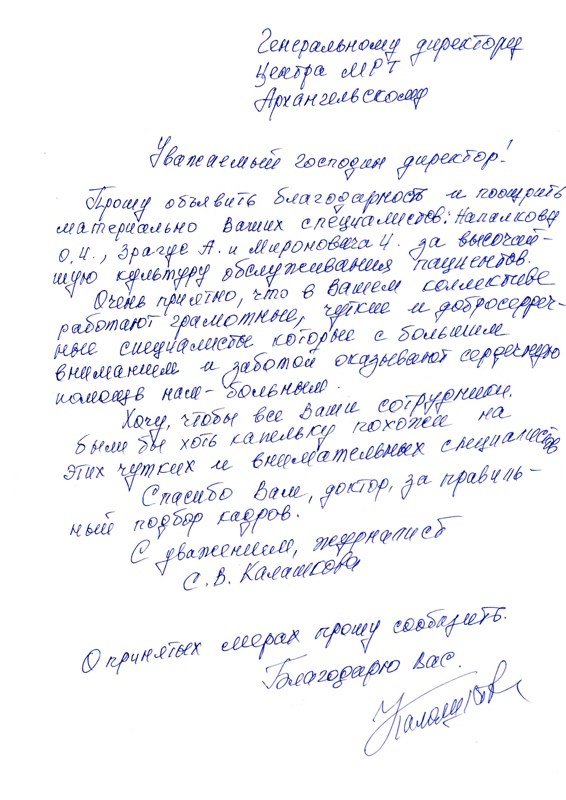 Генеральному директору
Центра МРТ
Архангельскому
Уважаемый господин директор!
Прошу объявить благодарность и поощрить
материально Ваших специалистов: Напалкову
О.И., Эрагус А. и Мироновича И. за высочай-
шую культуру обслуживания пациентов.
Очень приятно, что в Вашем коллективе
работают грамотные, чуткие и добросердеч-
ные специалисты которые с большим
вниманием и заботой оказывают сердечную
помощь нам - больным.
Хочу, чтобы все Ваши сотрудники
были бы хоть капельку похожи на
этих чутких и внимательных специалистов
Спасибо Вам, доктор, за правиль-
ный подбор кадров.
С уважением, журналист
С. В. Калашкова
О принятых мерах прошу сообщить.
Благодарю Вас.